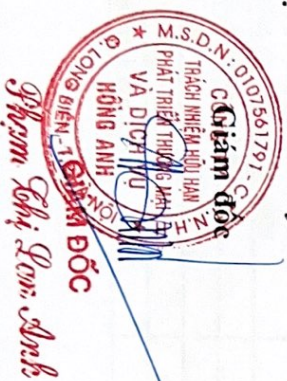 Giám đốc
M.S.D.N: 0107561791 - C.T.T.N.H.H
CÔNG TY
TRÁCH NHIỆM HỮU HẠN
PHÁT TRIỂN THƯƠNG MẠI
VÀ DỊCH VỤ
HỒNG ANH
Q. LONG BIÊN - T.P HÀ NỘI
GIÁM ĐỐC
Phạm Thị Lan Anh